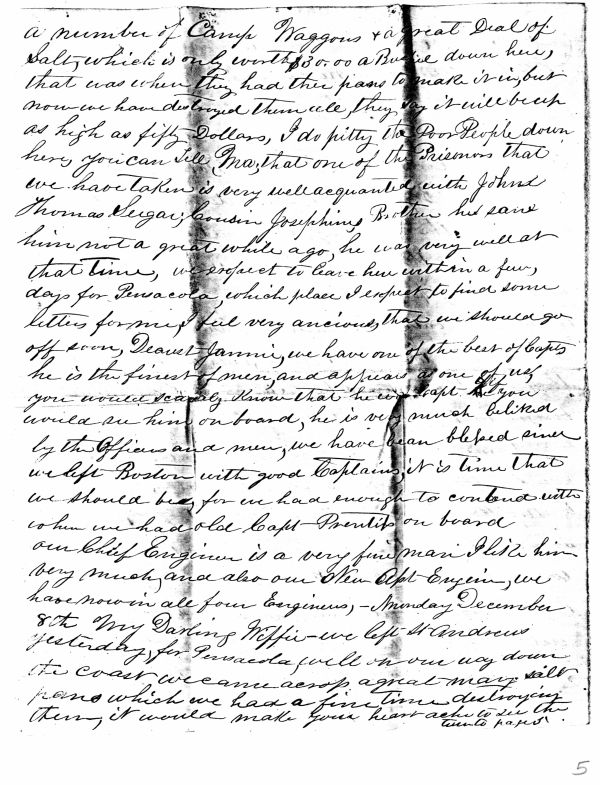 a number of Camp Waggons & a great Deal of
Salt, which is only worth $30.00 a Bushel down here,
that was when they had ther pans to make it in, but
now we have destroyed them all, they say it will be up
as high as fifty Dollars, I do pitty the Poor People down
here, you can Tell Ma, that one of the Prisonors that
we have taken is very well acquanted with John
Thomas Seegar, Cousin Josephine, Brother he saw
him not a great while ago, he was very well at
that time, we expect to leave here within a few,
days for Pensacola, which place I expect to find some
letters for me, I feel very ancious, that we should go
off soon, Deaust Jannie, we have one of the best of Capts
he is the finest of men, and appears as one of us,
you would scarcely Know that he was Capt if you
would see him on board, he is very much beliked
by the Officers and men, we have bean blessed since
we left Boston with good Captains, it is time that
we should be, for we had enough to contend with
when we had old Capt Prentiss on board
our Chief Enginer is a very fine man I like him
very much, and also our New Apt Engein, we
have now in all four Engineers, - Monday December
8th My Darling Wiffie - we left St Andrews
yesterday, for Pensacola, well on our way down
the coast we came across a great many salt
pans which we had a fine time destroying
them, it would make your heart ache to see the
turn to page 5
5